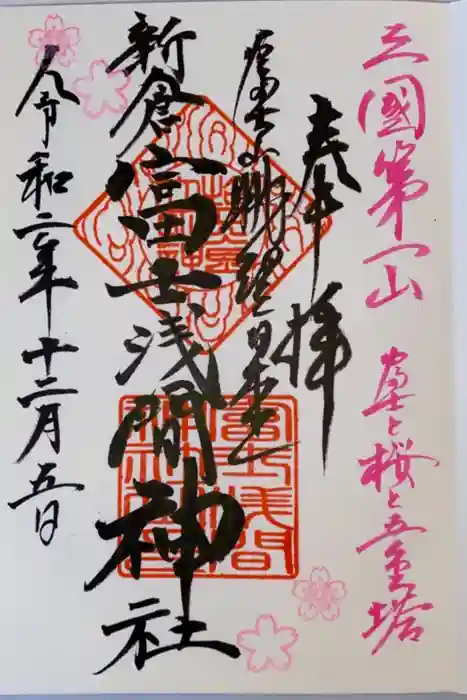 三國第一山 富士と桜と五重塔
奉拝
富士山眺望日本一
新倉富士浅間神社
令和二年十二月五日
富士浅間
神社之印